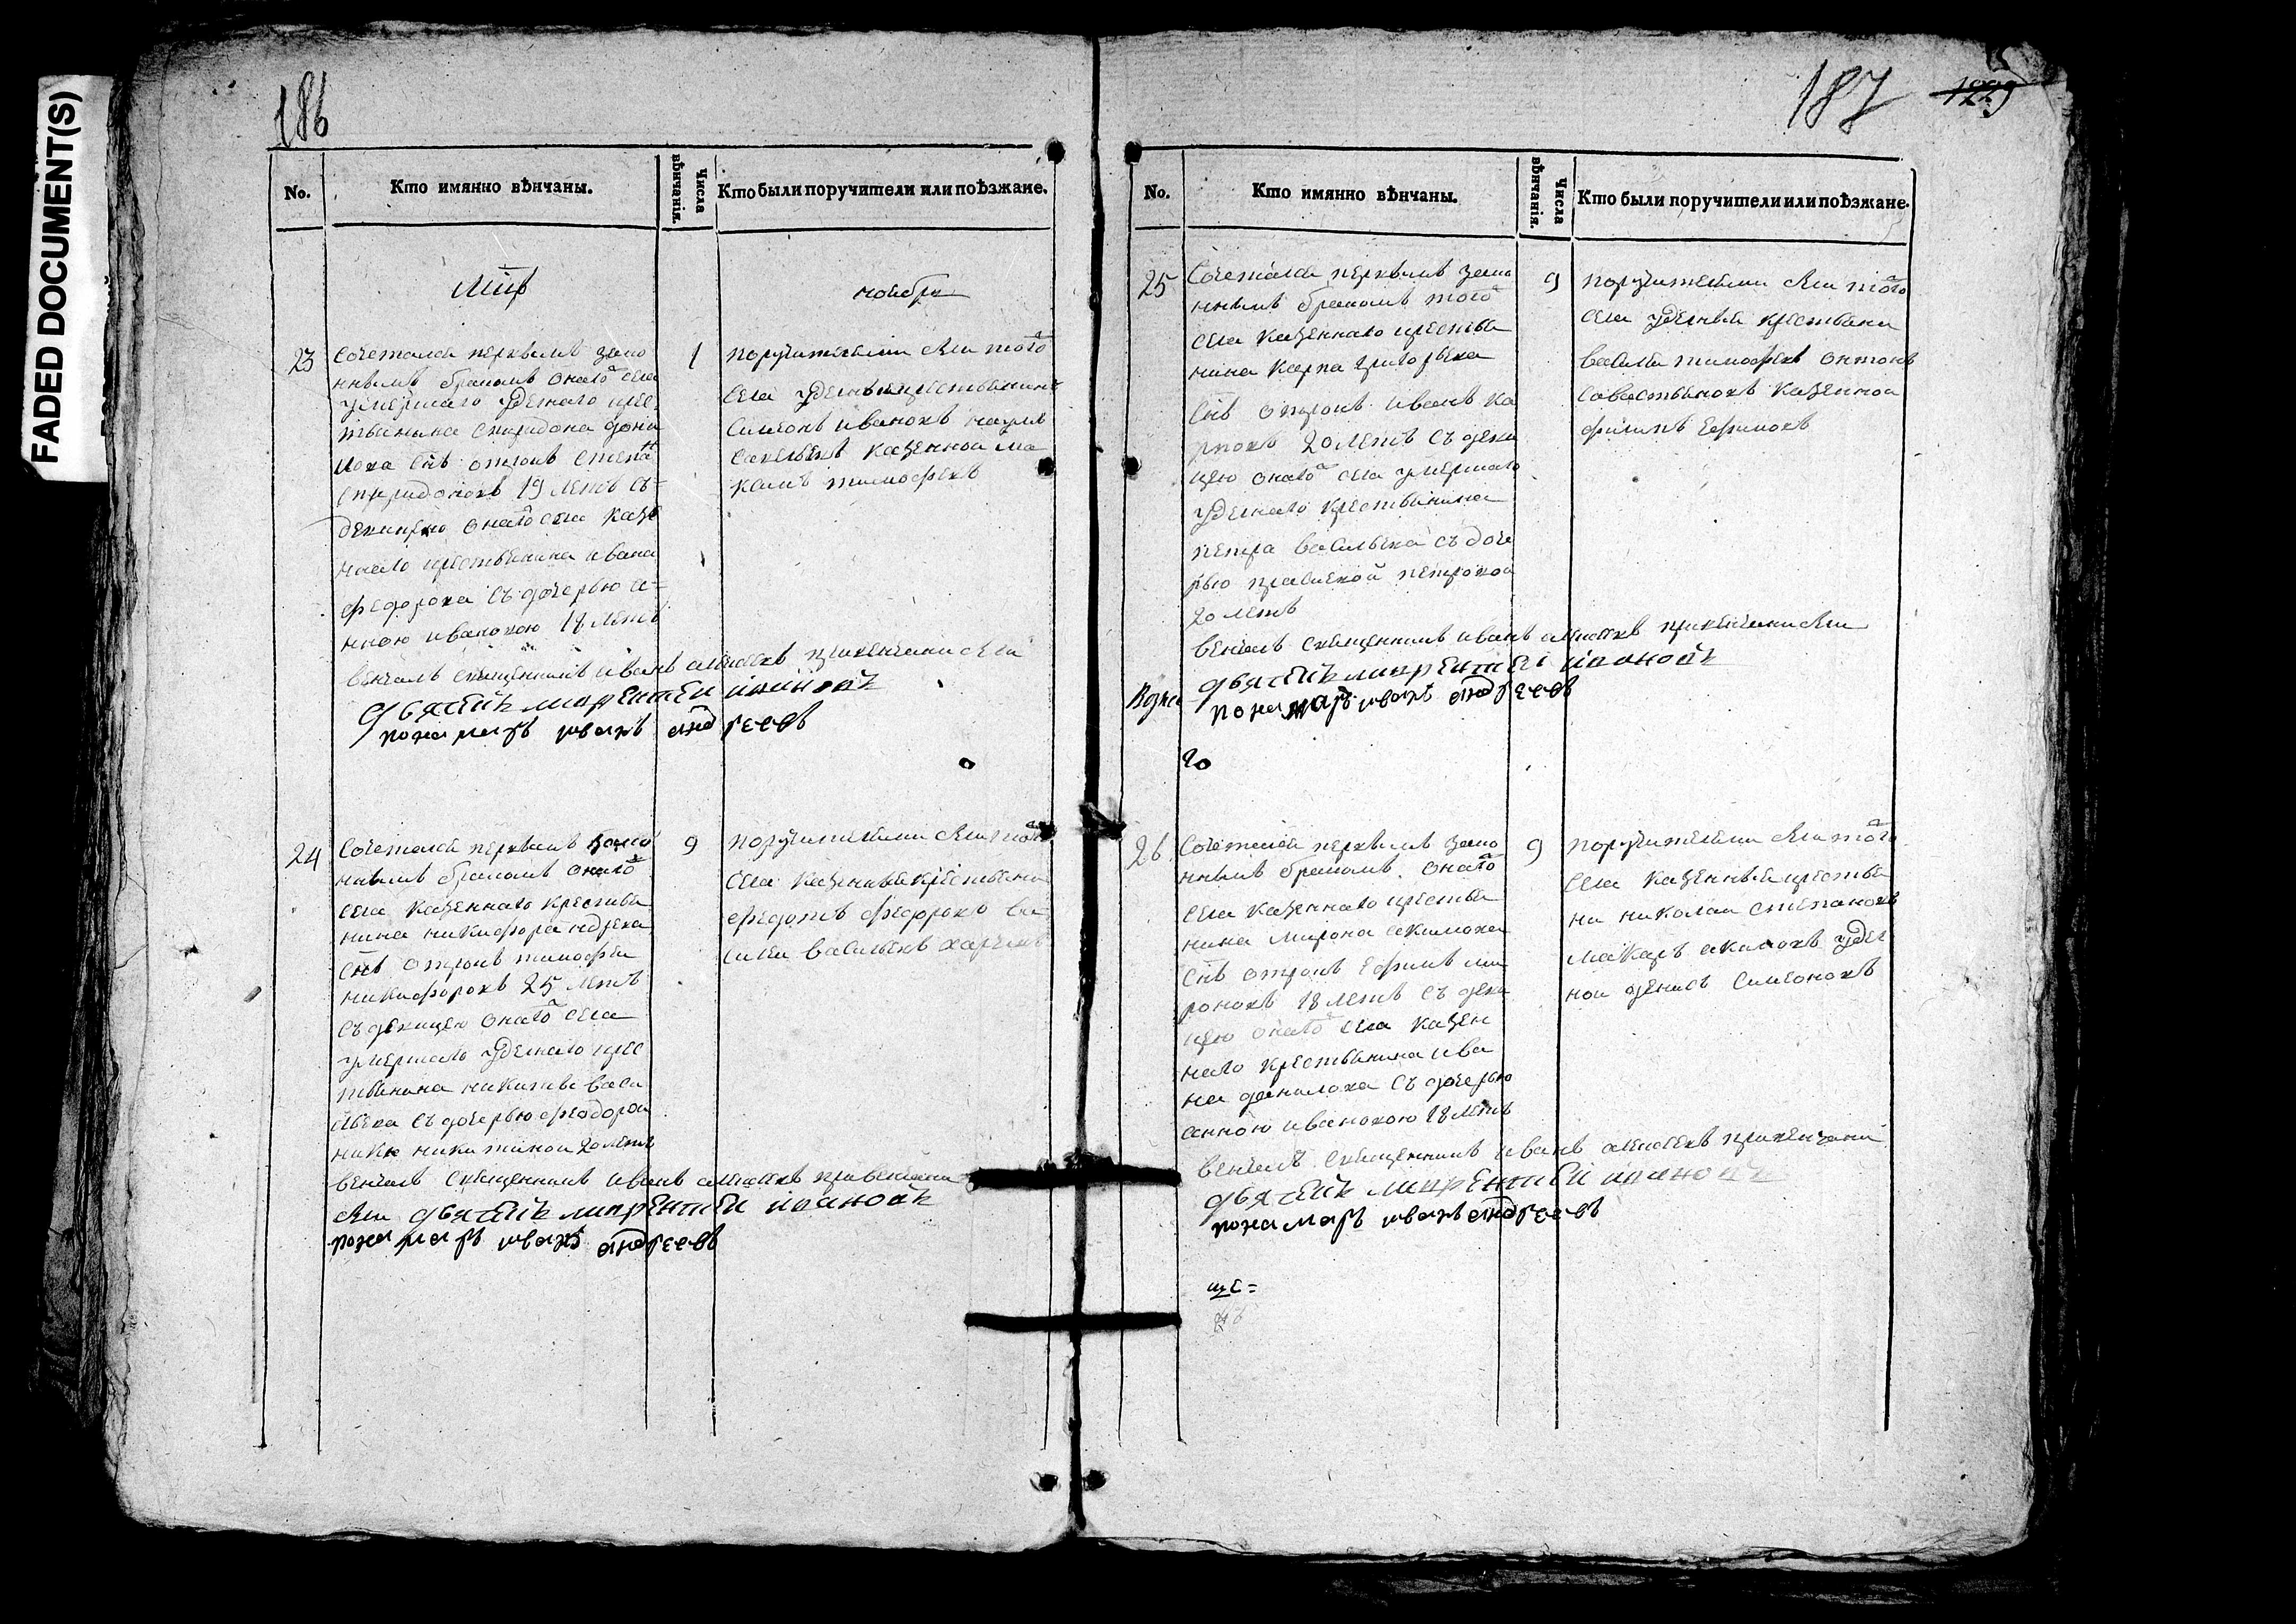 FADED DOCUMENT(S)
186
No.
Кто имянно вѣнчаны.
Числа вѣнчанiя.
Кто были поручители или поѣзжане.
ноября
23
Сочетался первымъ зако
ннымъ бракомъ онаго села
умершаго удельнаго крес
тьянина спиридона
снъ отрокъ степа
спиридоновъ 19 летъ съ=
девицею онаго села казе
ннаго крестьянина ивана
федорова съ дочерью а=
нною ивановою 18 летъ
1
поручителями были того
села удельныя крестьянинъ
симеонъ ивановъ наумъ
савельевъ казенной ма
каръ тимофеевъ
венчалъ священникъ иванъ алексеевъ привенчани были
дьячекъ лаврентеи ивановъ
пономарь иванъ андреевъ
24
Сочетался первымъ зако
ннымъ бракомъ онаго
села казеннаго крестья
нина никифора андрева
снъ отрокъ тимофеи
никифоровъ 25 летъ
съ девицею онаго села
умершаго удельнаго крес
тьянина никиты васи
льева съ дочерью феодоро
никою никитиной 20 летъ
9
поручителями были того
села казенныя крестьяни
федотъ федоровъ ва
силеи васильевъ
венчалъ священникъ иванъ алексеевъ привенчани
были дьячекъ лаврентеи ивановъ
пономарь иванъ андреевъ
187
1229
No.
Кто имянно вѣнчаны.
Числа вѣнчанiя.
Кто были поручители или поѣзжане.
25
Сочетался первымъ зако
ннымъ бракомъ того
села казеннаго крестья
нина карпа григорьева
снъ отрокъ иванъ ка
рповъ 20 летъ съ деви
цею онаго села умершаго
удельнаго крестьянина
петра васильева съ доче
рью петровой
20 летъ
9
поручителями были того
села удельныя крестьяни
василеи тимофеевъ онтонъ
савостьяновъ казенной
филипъ Ефимовъ
венчалъ священникъ иванъ алексеевъ привенчани были
дьячекъ лаврентеи ивановъ
пономарь иванъ андреевъ
го
26
Сочетался первымъ зако
ннымъ бракомъ онаго
села казеннаго крестья
нина мирона акимова
снъ отрокъ Ефимъ ми
роновъ 18 летъ съ деви
цею онаго села казен
наго крестьянина ива
на данилова съ дочерью
анною ивановою 18 летъ
9
поручителями были того
села казенныя крестья
ни николаи степановъ
макаръ акимовъ удел
ной денисъ симеоновъ
венчалъ священникъ иванъ алексеевъ привенчани
дьячекъ лаврентеи ивановъ
пономарь иванъ андреевъ
ще=